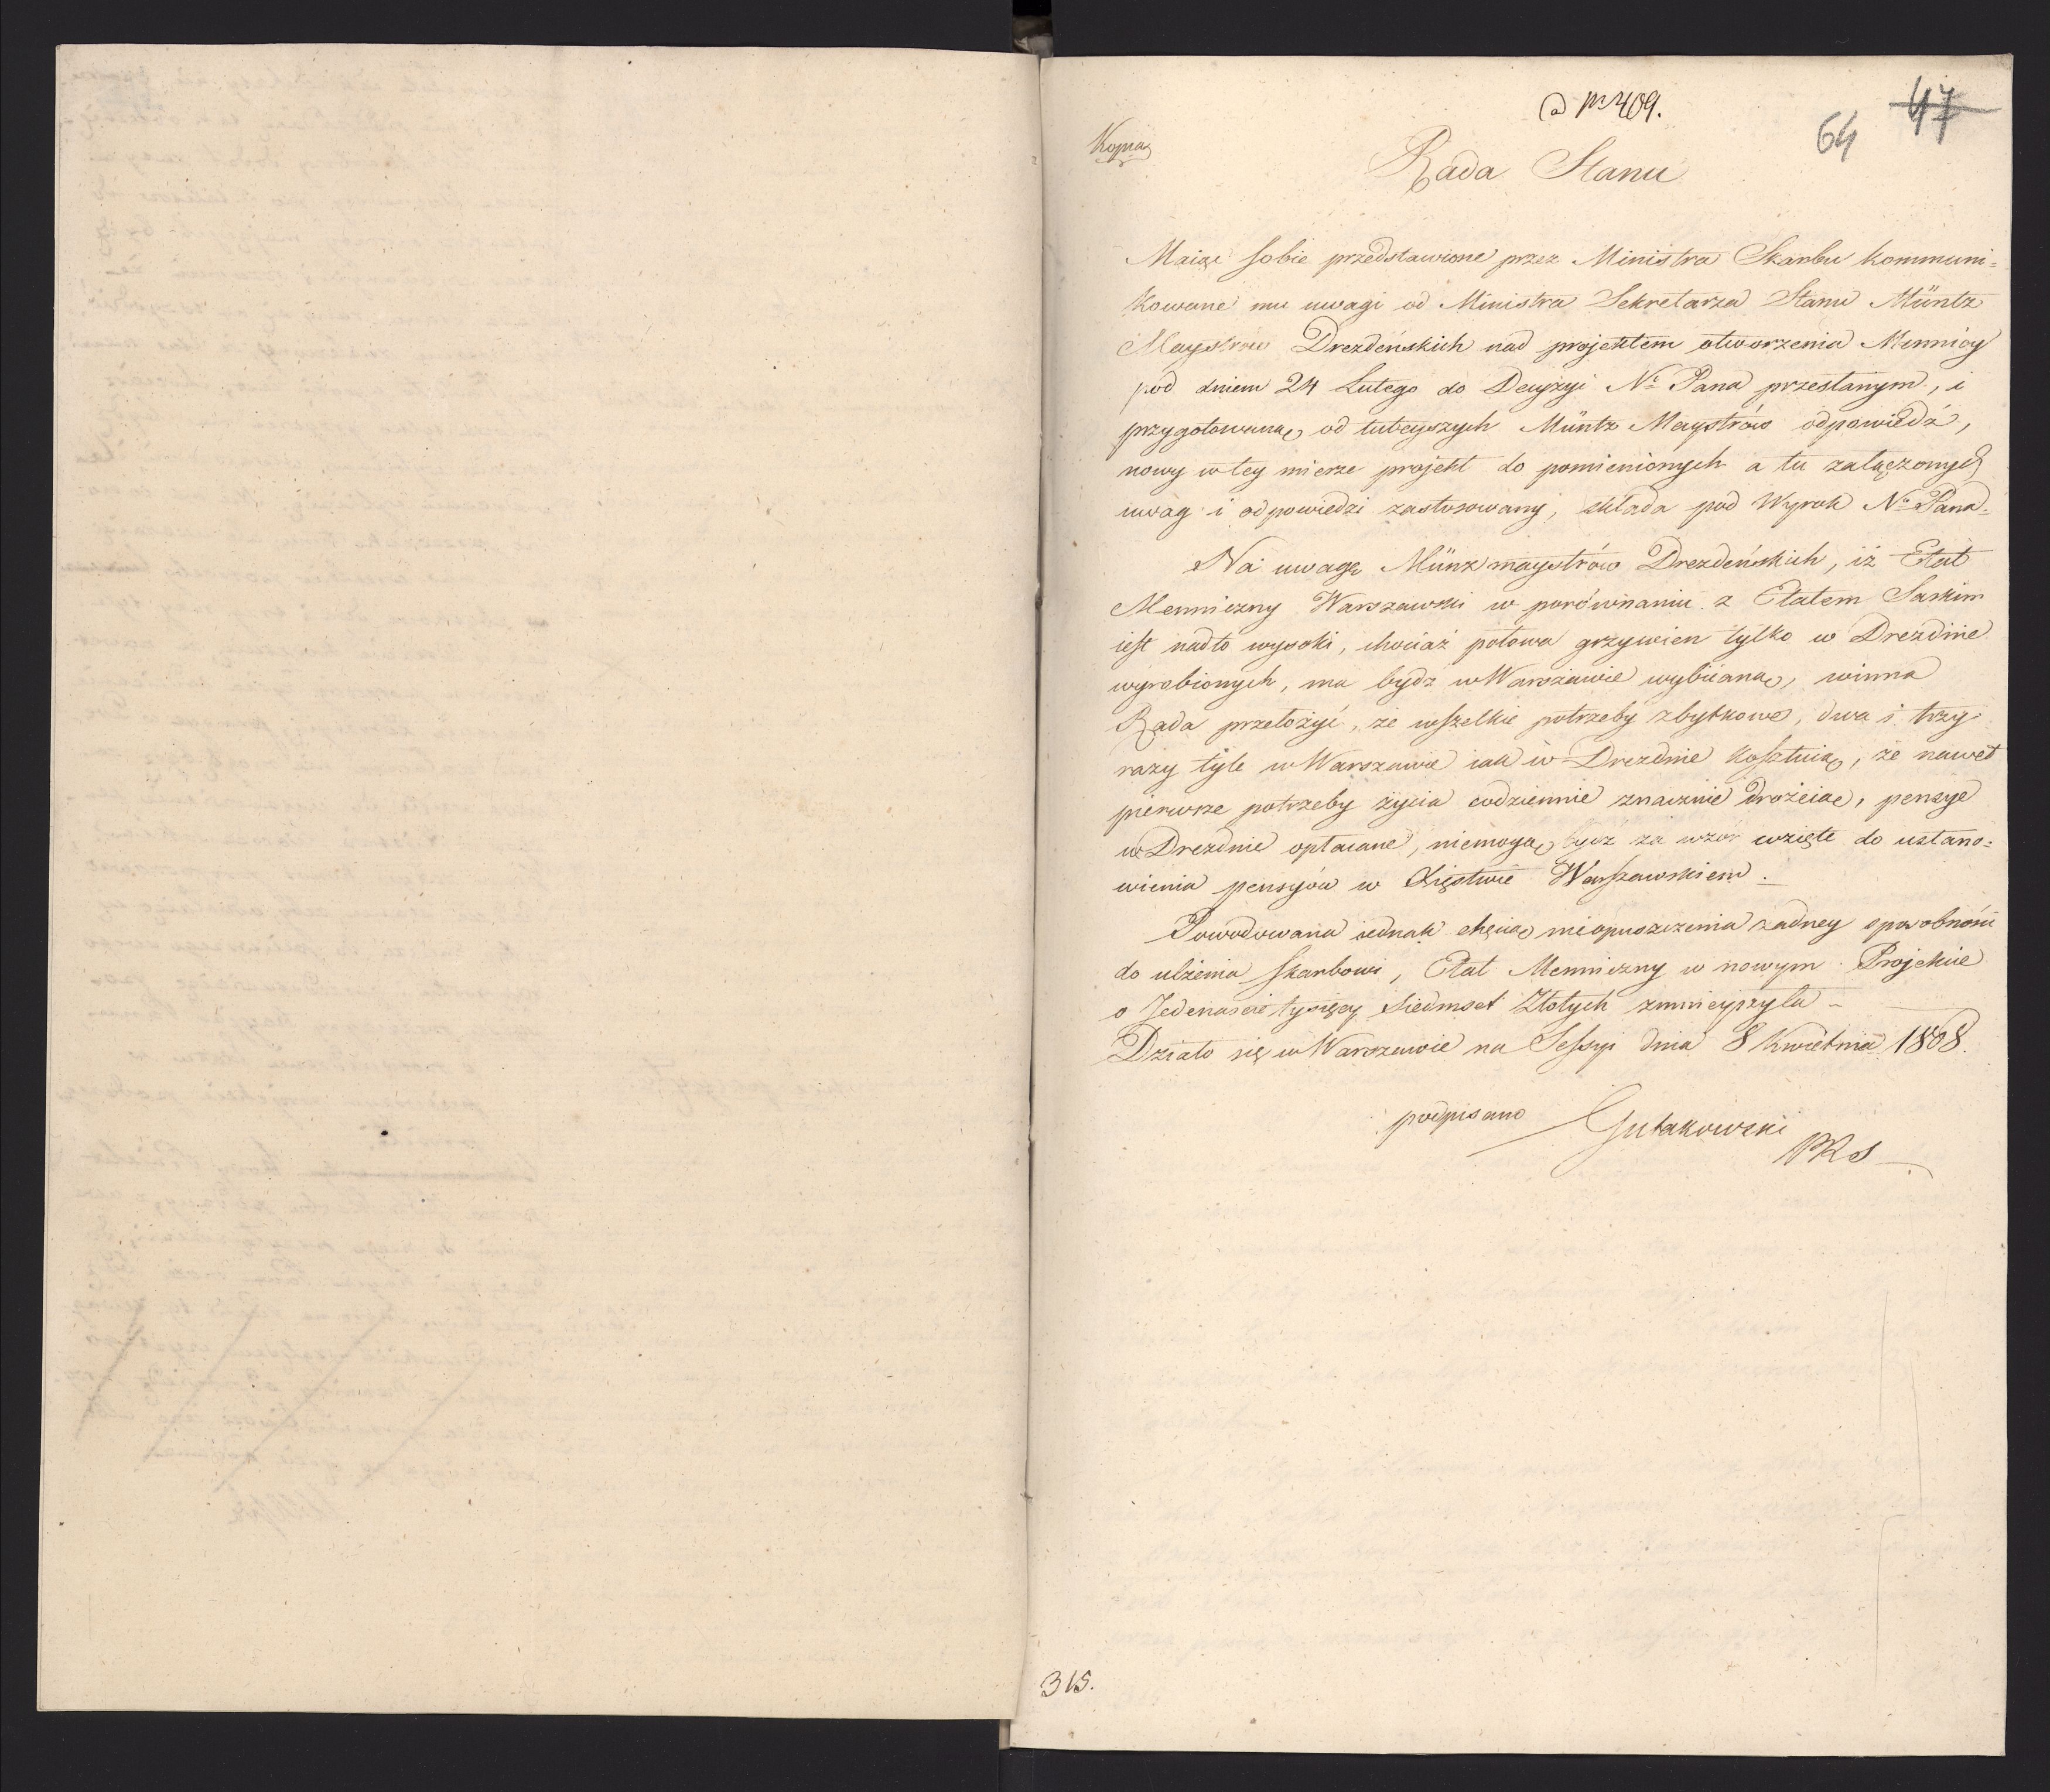 ad Nr 409.
47
64
Kopia
Rada Stanu
Maiąc sobie przedstawione przez Ministra Skarbu kommuni=
kowane mu uwagi od Ministra Sekretarza Stanu Müntz
Maystrów Drezdeńskich nad projektem otworzenia Mennicy
pod dniem 24 Lutego do Decyzyi No Pana przesłanym, i
przygotowaną od tuteyszych Müntz Maystrów odpowiedź,
nowy w tey mierze projekt do pomienionych a tu załączonych
uwag i odpowiedzi zastosowany, składa pod Wyrok No Pana.
Na uwagę Münzmaystrów Drezdeńskich, iż Etat
Menniczny Warszawski w porównaniu z Etatem Saskim
iest nadto wysoki, chociaż połowa grzywien tylko w Dreznie
wyrobionych, ma bydź w Warszawie wybiiana, winna
Rada przełożyć, że wszelkie potrzeby zbytkowe, dwa i trzy
razy tyle w Warszawie iak w Dreznie kosztuią, że nawet
pierwsze potrzeby życia codziennie znacznie drożeią, pensye
w Dreznie opłacane, niemogą bydź za wzór wzięte do ustano=
wienia pensyów w Xięstwie Warszawskiem.
Powodowana iednak chęcią nieopuszczenia żadney sposobności
do ulżenia Skarbowi, Etat Menniczny w nowym Projekcie
o Jedenaście tysięcy siedmset Złotych zmnieyszyła –
Działo się w Warszawie na Sessyi dnia 8 Kwietnia 1808.
podpisano Gutakowski
PRS
315.